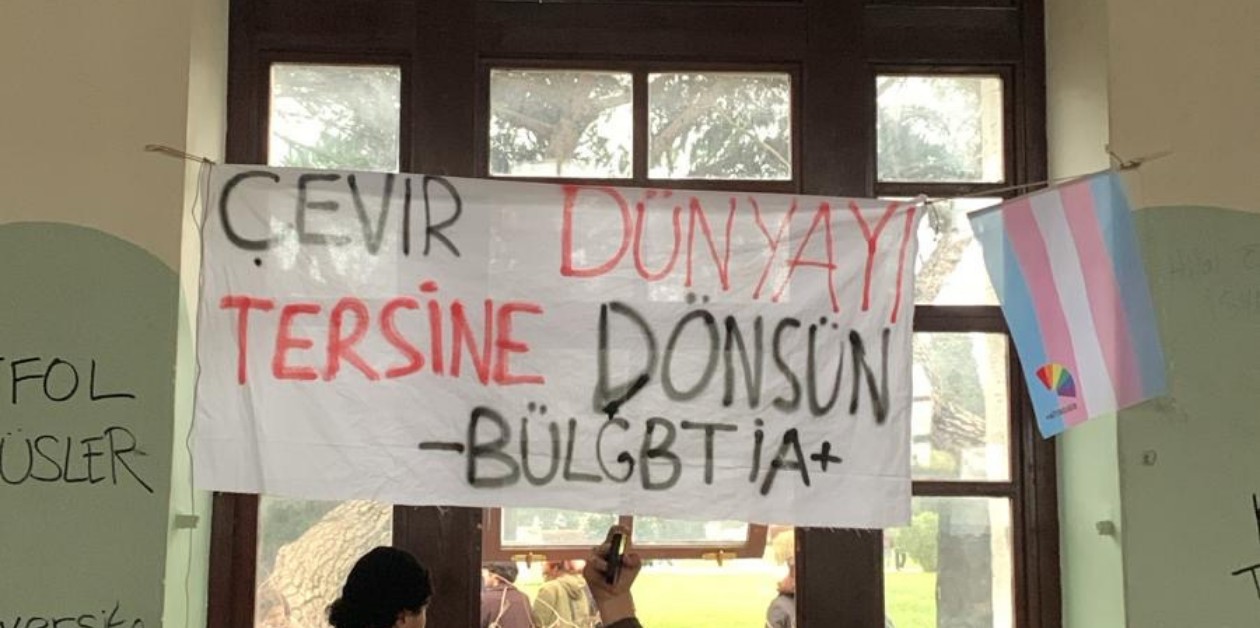 ÇEVIR DÜNYAYI
TERSİNE DÖNSÜN
-BÜLGBTİA+
FOL
ÜSLER